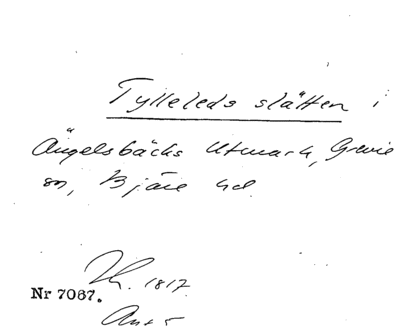 Tylleleds slätten i
Ängelsbäcks Utmark, Grevie
sn, Bjäre hd.
1817.
Nr 7067.